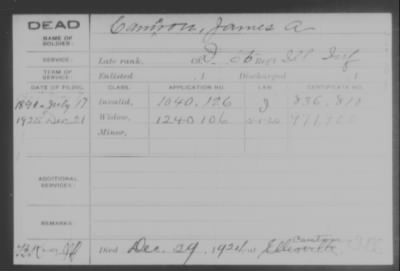 DEAD
NAME OF SOLDIER: Cantron, James A
SERVICE: Late rank, Co. D, Reg't Ill Inf
TERM OF SERVICE: Enlisted , 1 Discharged , 1
DATE OF FILING. CLASS. APPLICATION NO. LAW. CERTIFICATE NO.
1891 July 17 Invalid, 1040.126 836.810
1925 Dec 21 Widow, 1240106
Minor,
ADDITIONAL SERVICES:
REMARKS:
Died Dec. 29, 1924, at